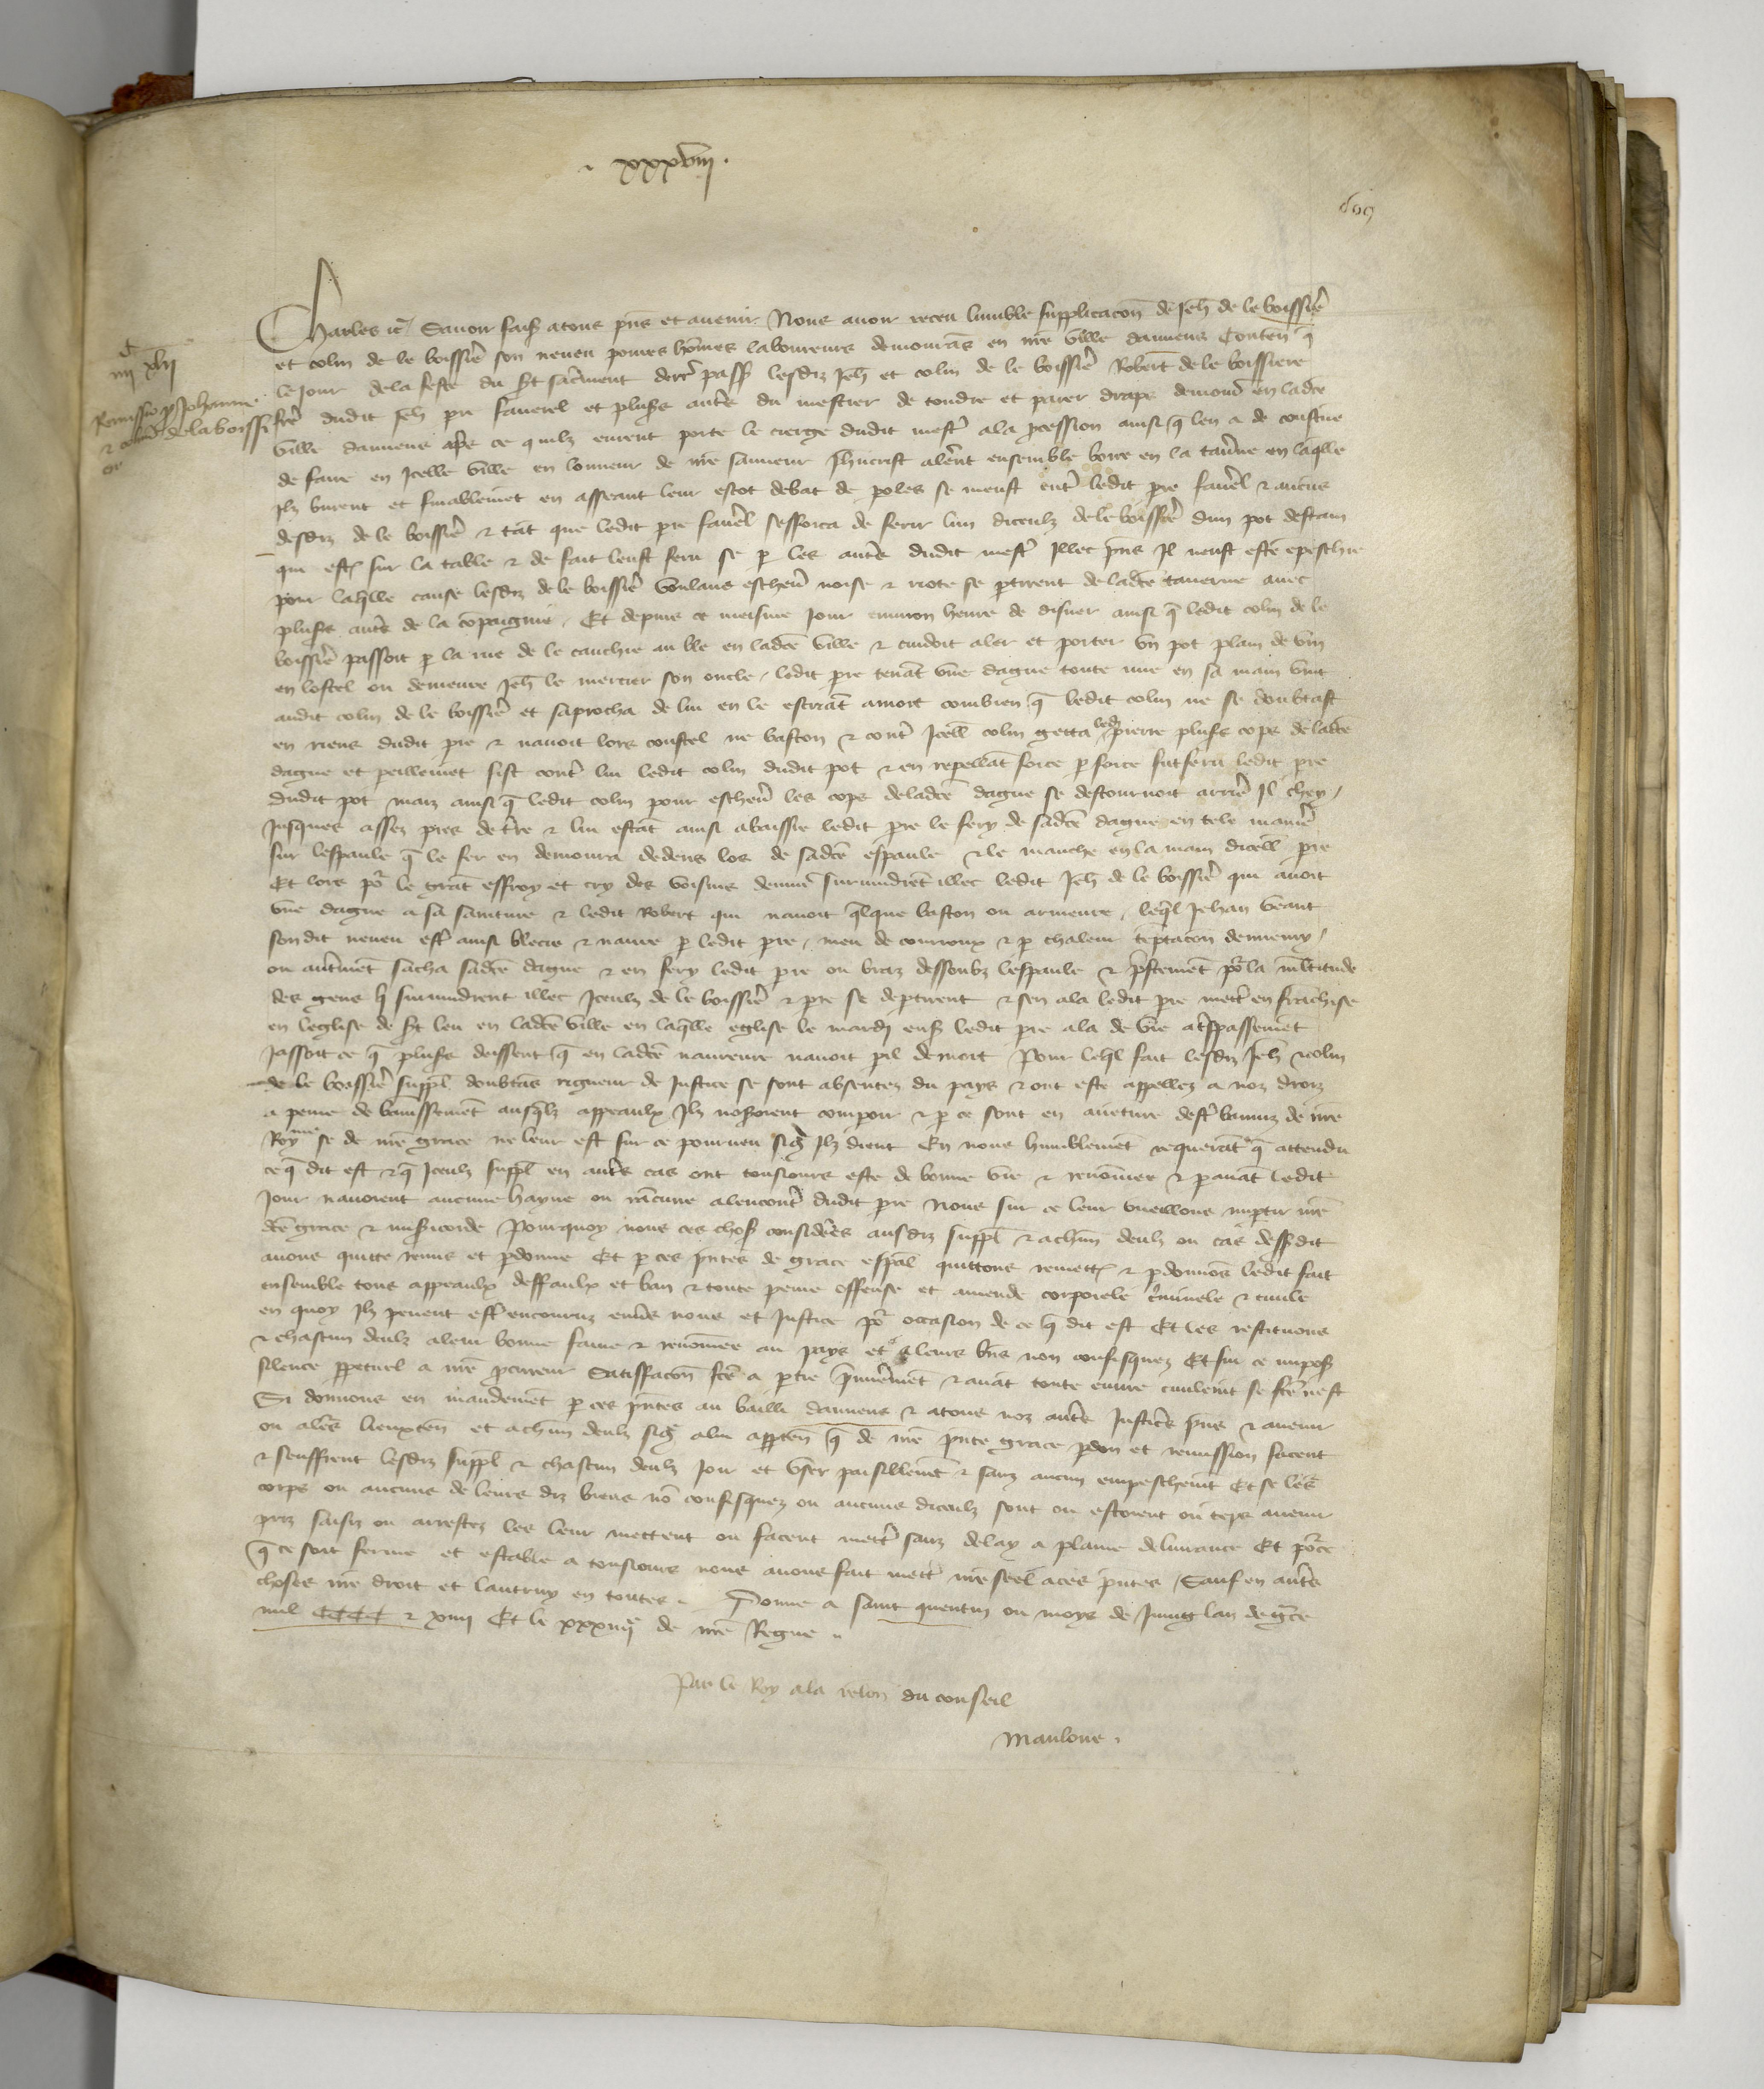 xxxviii.
Charles etc Savoir fais atous pns et avenir Nous avoir receu lumble supplicacon de Jeh de le boissiere
et colin de le boissiere son neveu povres homes laboureurs demourās en nre ville damiens Conten q
le jour de la feste du st sacrement derr passe lesdiz Jeh et colin de le boissiere Robert de le boissiere
frere dudit Jeh pre faverel et plusrs autrs du mestier de tondre et parer draps demour en ladce
ville damiens apres ce quilz eurent porte le cierge dudit mest ala pcession ainsi q len a de coustume
de faire en Icelle ville en lonneur de nre sauveur Jhucrist alerent ensemble boire en la taverne en laqlle
Ilz burent et finablemet en asseant leur escot debat de poles se meust entr ledit pre faverel et aucuns
desdiz de le boissiere et tat que ledit pre faverel sefforca de ferir lun diceulz de le boissiere dun pot destain
qui est sur la table et de fait leust feru se p les autrs dudit mest Illec pns Il neust este epeschie
pour laqlle cause lesdiz de le boissiere voulans eschever noise et riote se ptirent de ladce taverne avec
plusrs autrs de la copaignie. Et depuis ce meisme jour environ heure de disner ainsi q ledit colin de le
boissiere passoit p la rue de le cauchie au ble en ladce ville et cuidoit aler et porter un pot plain de vin
en lostel ou demeure Jeh le mercier son oncle. ledit pre tenat une dague toute nue en sa main vint
audit colin de le boissiere et saprocha de lui en le escriat amort combien q ledit colin ne se doubtast
en riens dudit pre et navoit lors coustel ne baston et contr Icell colin getta ledt pierre plusrs cops de ladce
dague et peillemet fist contr lui ledit colin dudit pot et en repellat force p force fut feru ledit pre
dudit pot mais ainsi q ledit colin pour eschever les cops de ladce dague se destournoit arrier Il chey
Jusques assez pres de tre et lui estat ainsi abaissie ledit pre le fery de sadce dague en tele manier
sur lespaule q le fer en demoura dedens los de sadce espaule et le manche en la main dicell pre
Et lors por le grat effroy et cry des voisins survindret illec ledit Jeh de le boissiere qui avoit
une dague a sa sainture et ledit Robert qui navoit qlque baston ou armeure. leql Jehan veant
sondit neveu estr ainsi blecie et navre p ledit pre. meu de courroux et p chaleur teptacon dennemy
ou autrmet sacha sadce dague et en fery ledit pre ou braz dessoubz lespaule et pstemet por la multitude
des gens q survindrent illec Iceulz de le boissiere et pre se deptirent et sen ala ledit pre mettr en frachise
en leglise de st leu en ladce ville en laqlle eglise le mardi ens ledit pre ala de vie atrspassemet
Jassoit ce q plusrs deissent q en ladce navreure navoit pil de mort Pour leql fait lesdiz Jeh et colin
de le boissiere suppl doubtas rigueur de Justice se sont absentez du pays et ont este appellez a noz droiz
a peine de banissemet ausqlz appeaulx Ilz noseroient compoir et p ce sont en aveture destr banniz de nre
Royme se de nre grace ne leur est sur ce pourveu sicq Ilz dient En nous humblemet requerat q attendu
ce q dit est et q Iceulz suppl en autrs cas ont tousiours este de bonne vie et renomee et p avat ledit
Jour navoient aucune hayne ou racune alencontr dudit pre Nous sur ce leur vueillons impartir nre
dce grace et misicorde Pourquoy nous ces chos consideres ausdiz suppl et achun deulz ou cas dessdit
avons quitte remis et pdonne Et p ces pntes de grace espal quittons remett et pdonnos ledit fait
ensemble tous appeaulx deffaulx et ban et toute peine offense et amende corporele crminele et civile
en quoy Ilz pevent estr encouruz envrs nous et Justice por occasion de ce q dit est Et les restituons
et chascun deulz aleur bonne fame et renomee au pays et a leurs bns non confisquez Et sur ce impos
silence ppetuel a nre pcureur Satisfacon fce a ptie pmieremet et avat toute euvre civilemt se fce nest
Si donnons en mandemet p ces pntes au bailli damiens et atous noz autrs Justicrs pns et avenir
ou alers lieuxten et achun deulz sicq alui appten q de nre pnte grace pdon et remission facent
et seuffrent lesdiz suppl et chascun deulz Joir et user paisiblemet et sanz aucun empeschemt Et se les
corps ou aucuns de leurs diz biens no confisquez ou aucuns diceulz sont ou estoient ou teps avenir
priz saisiz ou arrestez les leur mettent ou facent mettr sanz delay a plaine delivrance Et por ce
q ce soit ferme et estable a tousiours nous avons fait mettr nre seel aces pntes Sauf en autrs
choses nre droit et lautruy en toutes. Donne a saint quentin ou moys de Juing lan de grce
mil CCCC et xiiii Et le xxxiiiie de nre Regne
Par le Roy ala relon du conseil
Mauloue.
Remissio p Johanne